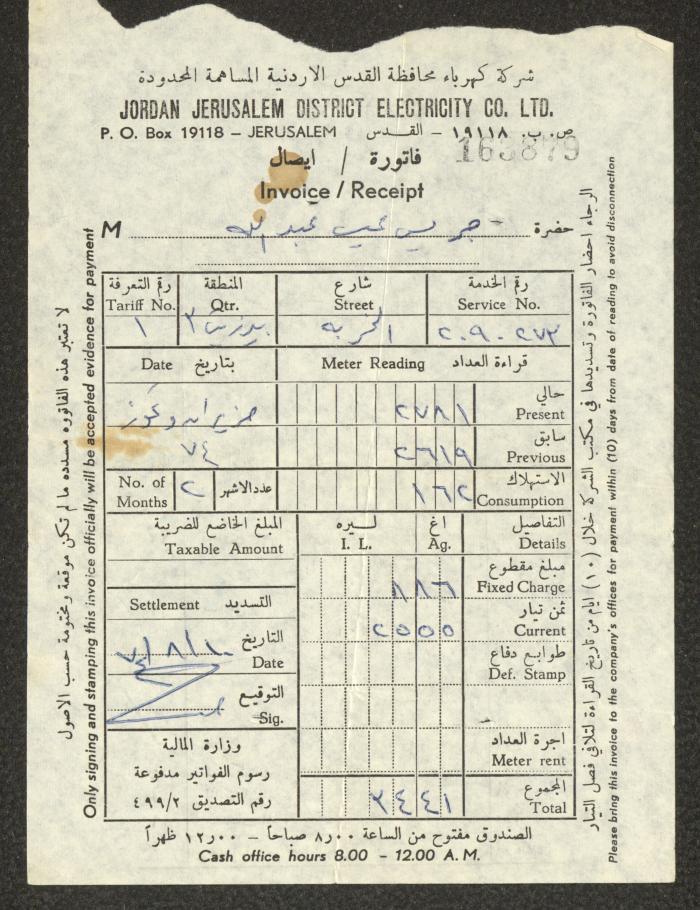 شركة كهرباء محافظة القدس الاردنية المساهمة المحدودة
JORDAN JERUSALEM DISTRICT ELECTRICITY CO. LTD.
P. O. Box 19118 – JERUSALEM ص. ب. ١٩١١٨ – القدس
163879
فاتورة / ايصال
Invoice / Receipt
M حضرة
رقم التعرفة المنطقة شارع رقم الخدمة
Tariff No. Qtr. Street Service No.
١ ٢٠٩٠٢٧٣
Date بتاريخ Meter Reading قراءة العداد
حالي
حزيران وتموز ٢٧٨١ Present
سابق
٧٤ ٢٦١٩ Previous
No. of Months ٢ عدد الاشهر
الاستهلاك
١٦٢ Consumption
المبلغ الخاضع للضريبة ليره اغ التفاصيل
Taxable Amount I. L. Ag. Details
مبلغ مقطوع
٨٨٦ Fixed Charge
ثمن تيار
٢٥٥٥ Current
Settlement التسديد
طوابع دفاع
Def. Stamp
التاريخ
Date
التوقيع
Sig.
اجرة العداد
Meter rent
وزارة المالية
رسوم الفواتير مدفوعة
رقم التصديق ٤٩٩/٢
المجموع
٣٤٤١ Total
الصندوق مفتوح من الساعة ٨٫٠٠ صباحاً – ١٢٫٠٠ ظهراً
Cash office hours 8.00 – 12.00 A. M.
لا تعتبر هذه الفاتوره مسدده ما لم تكن موقعة ومختومة حسب الاصول
Only signing and stamping this invoice officially will be accepted evidence for payment
الرجاء احضار الفاتورة وتسديدها في مكتب الشركة خلال (١٠) ايام من تاريخ القراءة لتلافي فصل التيار
Please bring this invoice to the company's offices for payment within (10) days from date of reading to avoid disconnection